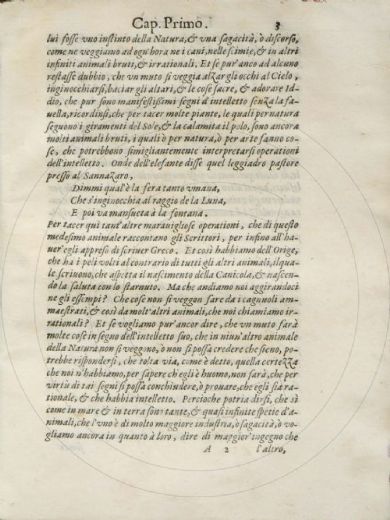 Cap. Primo. 3
lui fosse vno instinto della Natura, & vna sagacità, ò discorso,
come ne veggiamo ad ogn'hora ne i cani, nelle scimie, & in altri
infiniti animali bruti, & irrationali. Et se pur'anco ad alcuno
restasse dubbio, che vn muto si veggia alzar gli occhi al Cielo,
inginocchiarsi, baciar gli altari, & le cose sacre, & adorare Id-
dio, che pur sono manifestissimi segni d'intelletto senza la fa-
uella, ricordinsi, che per tacer molte piante, le quali per natura
seguono i giramenti del Sole, & la calamita il polo, sono ancora
molti animali bruti, i quali ò per natura, ò per arte fanno co-
se, che potrebbono simigliantemente interpretarsi operationi
dell'intelletto. Onde dell'elefante disse quel leggiadro pastore
presso al Sannazaro,
Dimmi qual'è la fera tanto vmana,
Che s'inginocchia al raggio de la Luna,
E poi va mansueta à la fontana.
Per tacer quì tant'altre marauigliose operationi, che di questo
medesimo animale raccontano gli Scrittori, per infino all'ha-
uer'egli appreso di scriuer Greco. Et così habbiamo dell'Orige,
che ha i peli volti al contrario di tutti gli altri animali, il qua-
le scriuono, che aspetta il nascimento della Canicola, & nascen-
do la saluta con lo starnuto. Ma che andiamo noi aggirandoci
ne gli essempi? Che cose non si veggon fare da i cagnuoli am-
maestrati, & così da molt'altri animali, che noi chiamiamo ir-
rationali? Et se vogliamo pur'ancor dire, che vn muto farà
molte cose in segno dell'intelletto suo, che in niun'altro animale
della Natura non si veggono, ò non si possa credere che sieno, po-
trebbe rispondersi, che tolta via, come è detto, quella certezza
che noi n'habbiamo, per sapere ch'egli è huomo, non sarà, che per
virtù di tai segni si possa conchiudere, ò prouare, che egli sia ra-
tionale, & che habbia intelletto. Percioche potria dirsi, che sì
come in mare & in terra sono tante, & quasi infinite spetie d'a-
nimali, che l'vno è di molto maggiore industria, ò sagacità, ò vo-
gliamo ancora in quanto à loro, dire di maggior'ingegno che
A 2 l'altro,